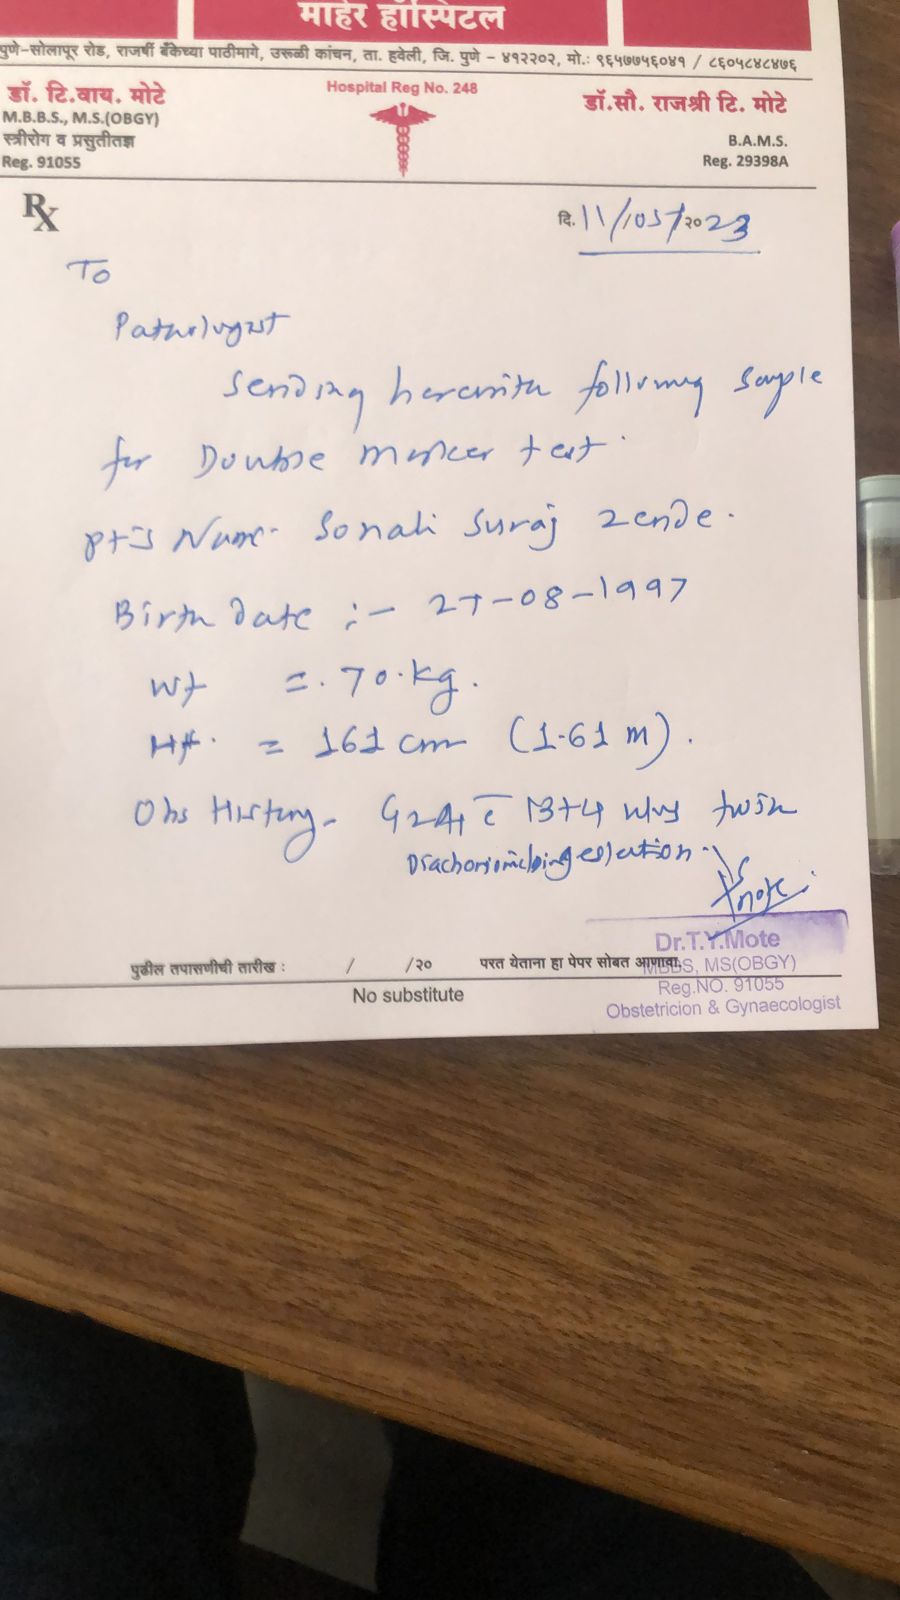 माहेर हॉस्पिटल
पुणे-सोलापूर रोड, राजर्षी बँकेच्या पाठीमागे, उरूळी कांचन, ता. हवेली, जि. पुणे - ४१२२०२, मो.: ९६५७७५६०४१ / ८६०५८४८४७६
डॉ. टि.वाय. मोटे
M.B.B.S., M.S.(OBGY)
स्त्रीरोग व प्रसुतीतज्ञ
Reg. 91055
Hospital Reg No. 248
डॉ.सौ. राजश्री टि. मोटे
B.A.M.S.
Reg. 29398A
Rx
दि. 11/05/२०23
To
Pathologist
Sending herewith following sample
for Double marker test.
pt's Name- Sonali Suraj Zende.
Birth Date :- 27-08-1997
Wt =. 70.kg.
Ht. = 161 cm (1.61 m).
Obs History- G2A1 c̄ 13+4 wks twin
gestation.
पुढील तपासणीची तारीख : / /२० परत येताना हा पेपर सोबत आणावा.
No substitute
Dr.T.Y.Mote
MBBS, MS(OBGY)
Reg.NO. 91055
Obstetricion & Gynaecologist